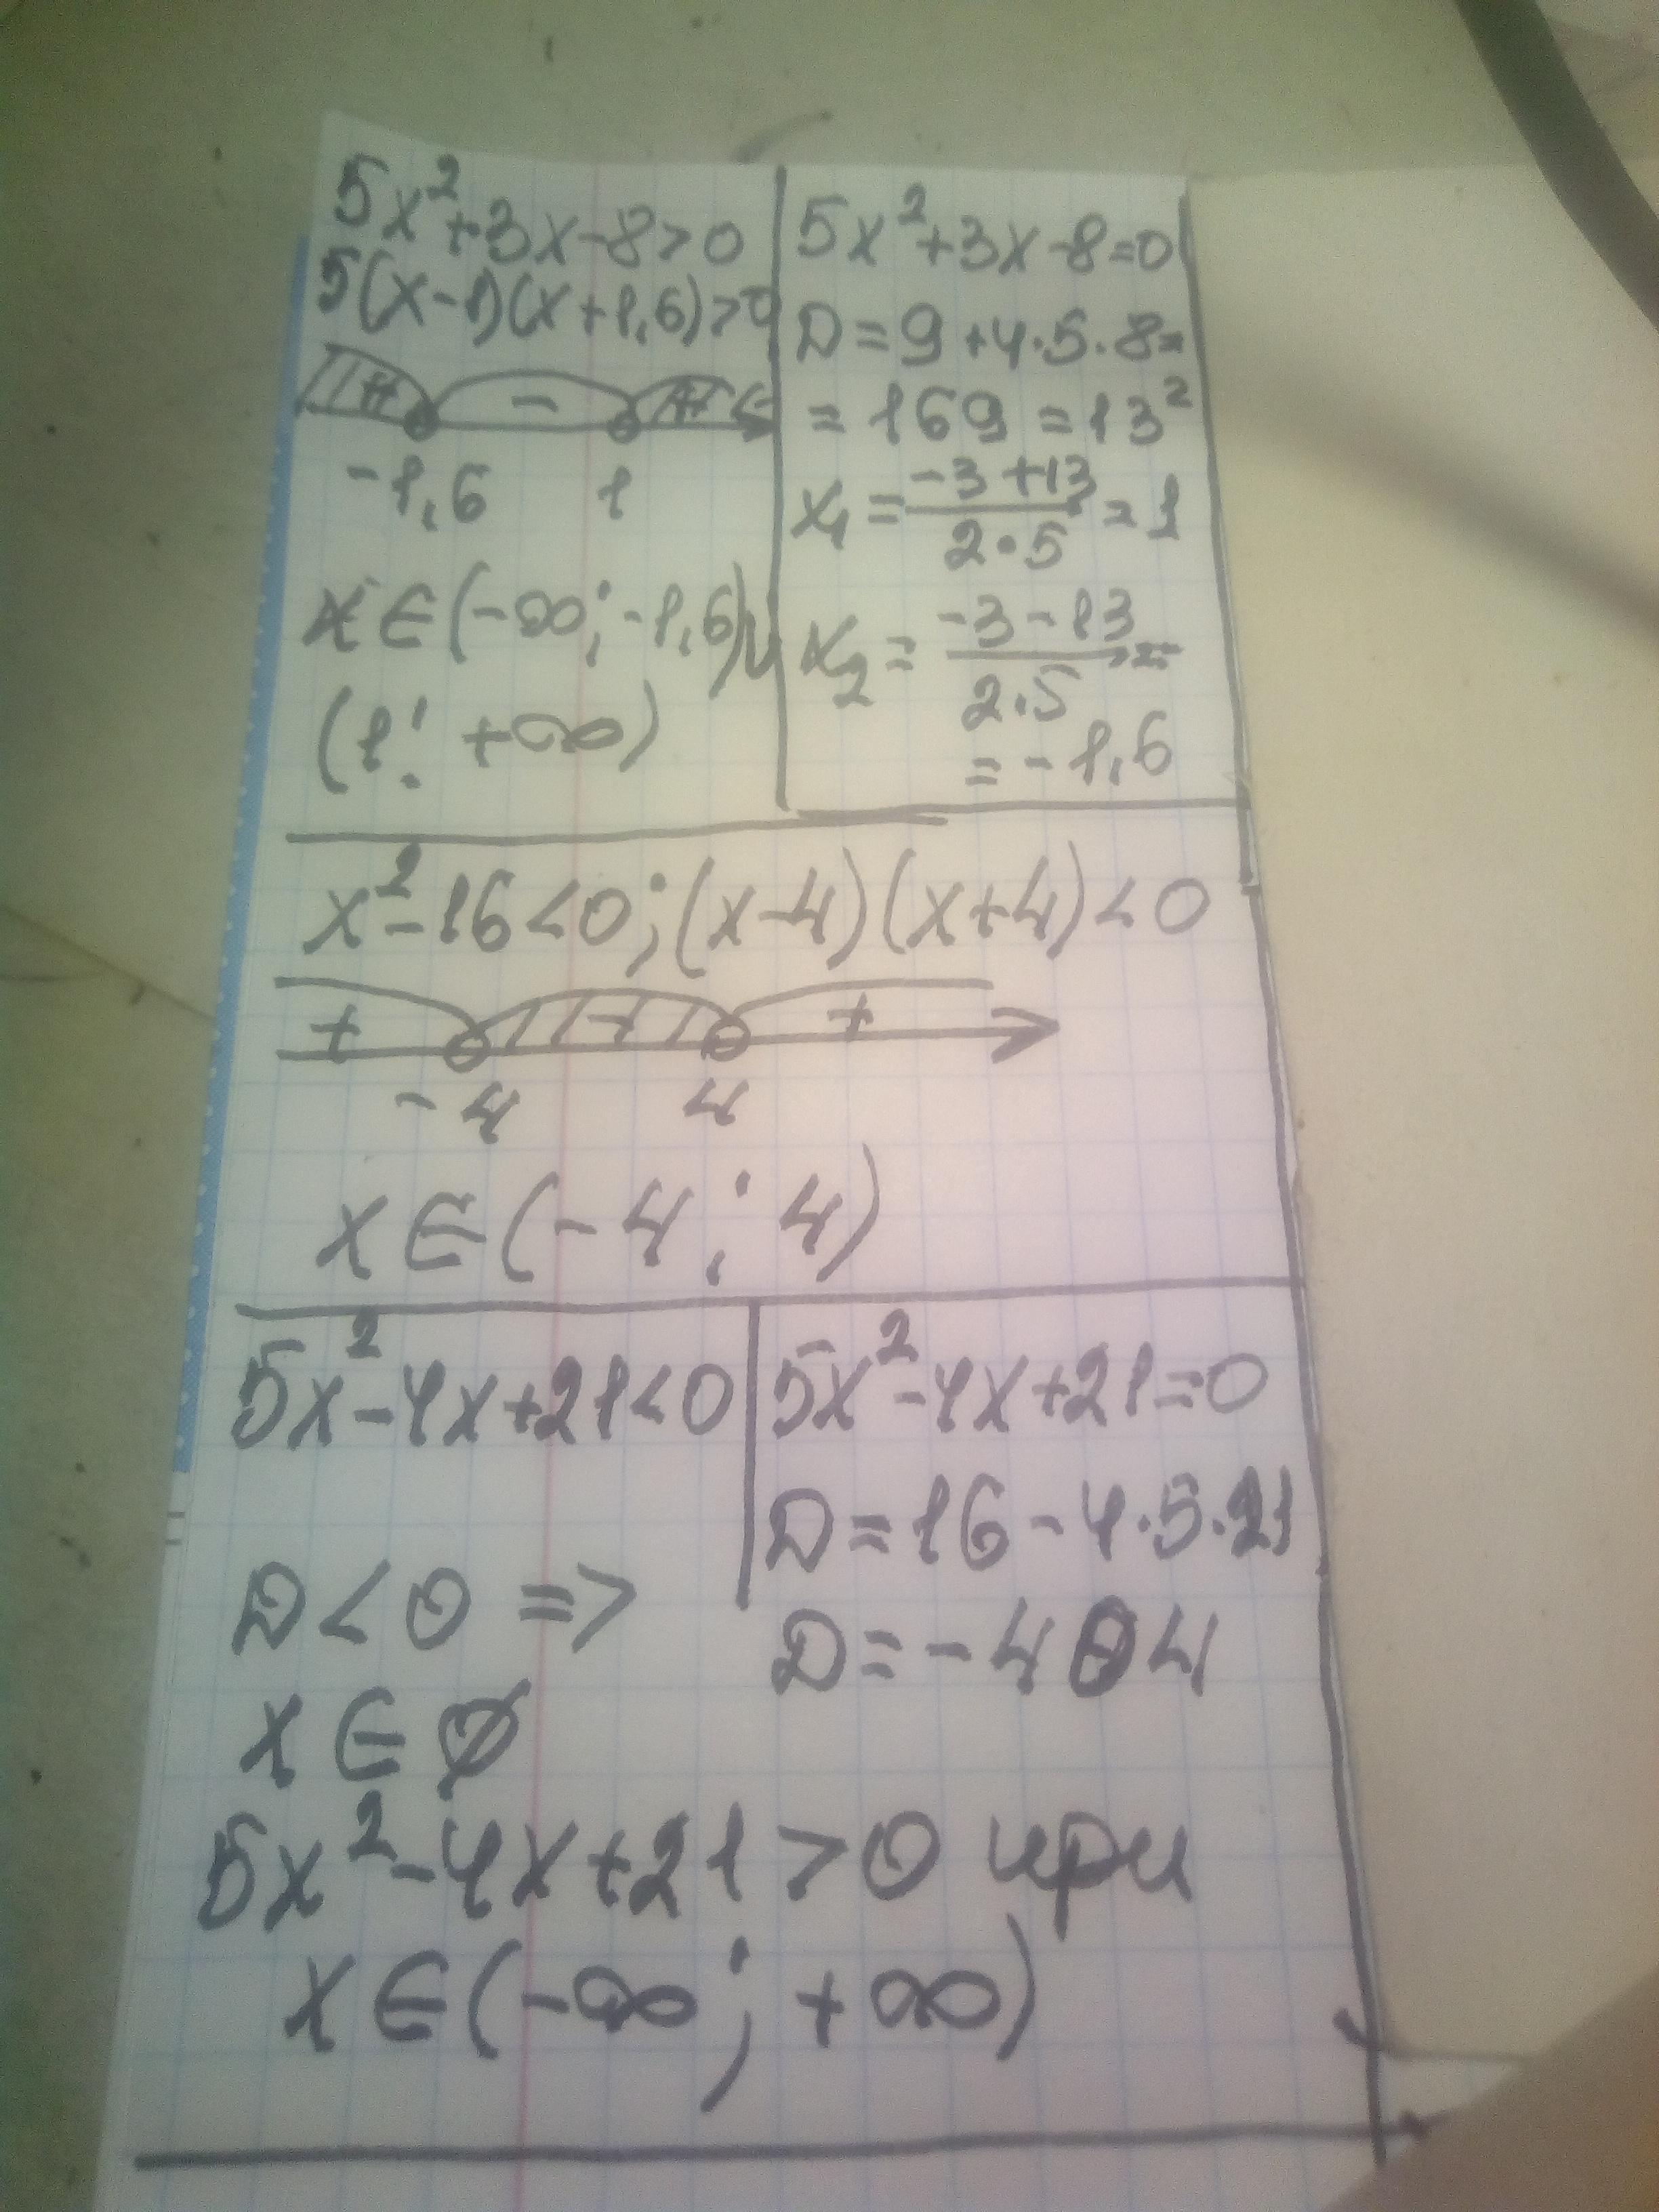 5x²+3x-8>0
5(x-1)(x+1,6)>0
+ - +
-1,6 1
x∈(-∞;-1,6)∪
(1; +∞)
5x²+3x-8=0
D=9+4·5·8=
=169=13²
x₁=(-3+13)/(2·5)=1
x₂=(-3-13)/(2·5)=
=-1,6
x²-16<0; (x-4)(x+4)<0
+ - +
-4 4
x∈(-4; 4)
5x²-4x+21<0
D<0 =>
x∈∅
5x²-4x+21=0
D=16-4·5·21
D=-404
5x²-4x+21>0 при
x∈(-∞; +∞)